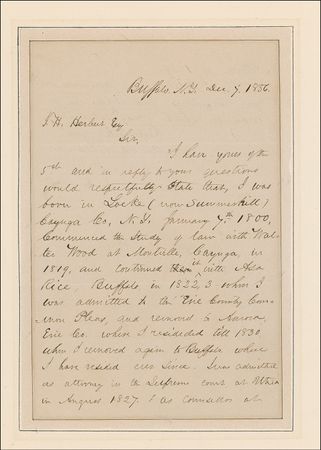 Buffalo, N.Y. Dec. 7. 1856.
J. H. Herbert Esq
Sir,
I have yours of the
5th and in reply to your questions
would respectfully State that, I was
born in Locke (now Summerhill)
Cayuga Co, N.Y. January 7th 1800,
Commenced the Study of law with Wal-
ter Wood at Montville, Cayuga, in
1819, and continued it with Asa
Rice, Buffalo, in 1822,3 when I
was admitted to the Erie County Com-
mon Pleas, and removed to Aurora,
Erie Co. where I resideded till 1830
when I removed again to Buffalo where
I have resided ever since. I was admitted
as attorney in the Supreme court at Utica
in August 1827. & as counsellor at